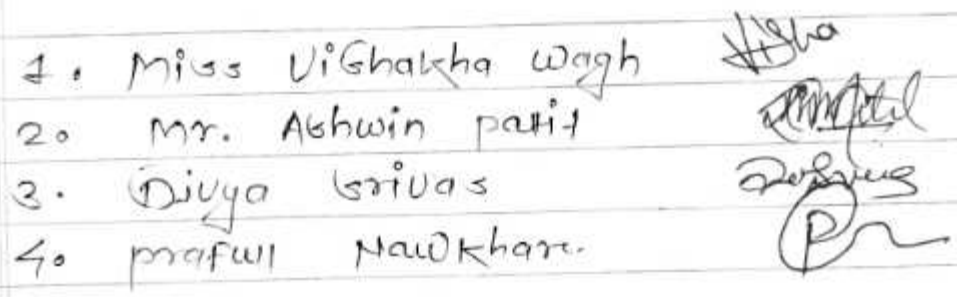 1. Miss Vishakha Wagh
2. Mr. Ashwin patil
3. Divya Srivas
4. prafull Nawkhare.